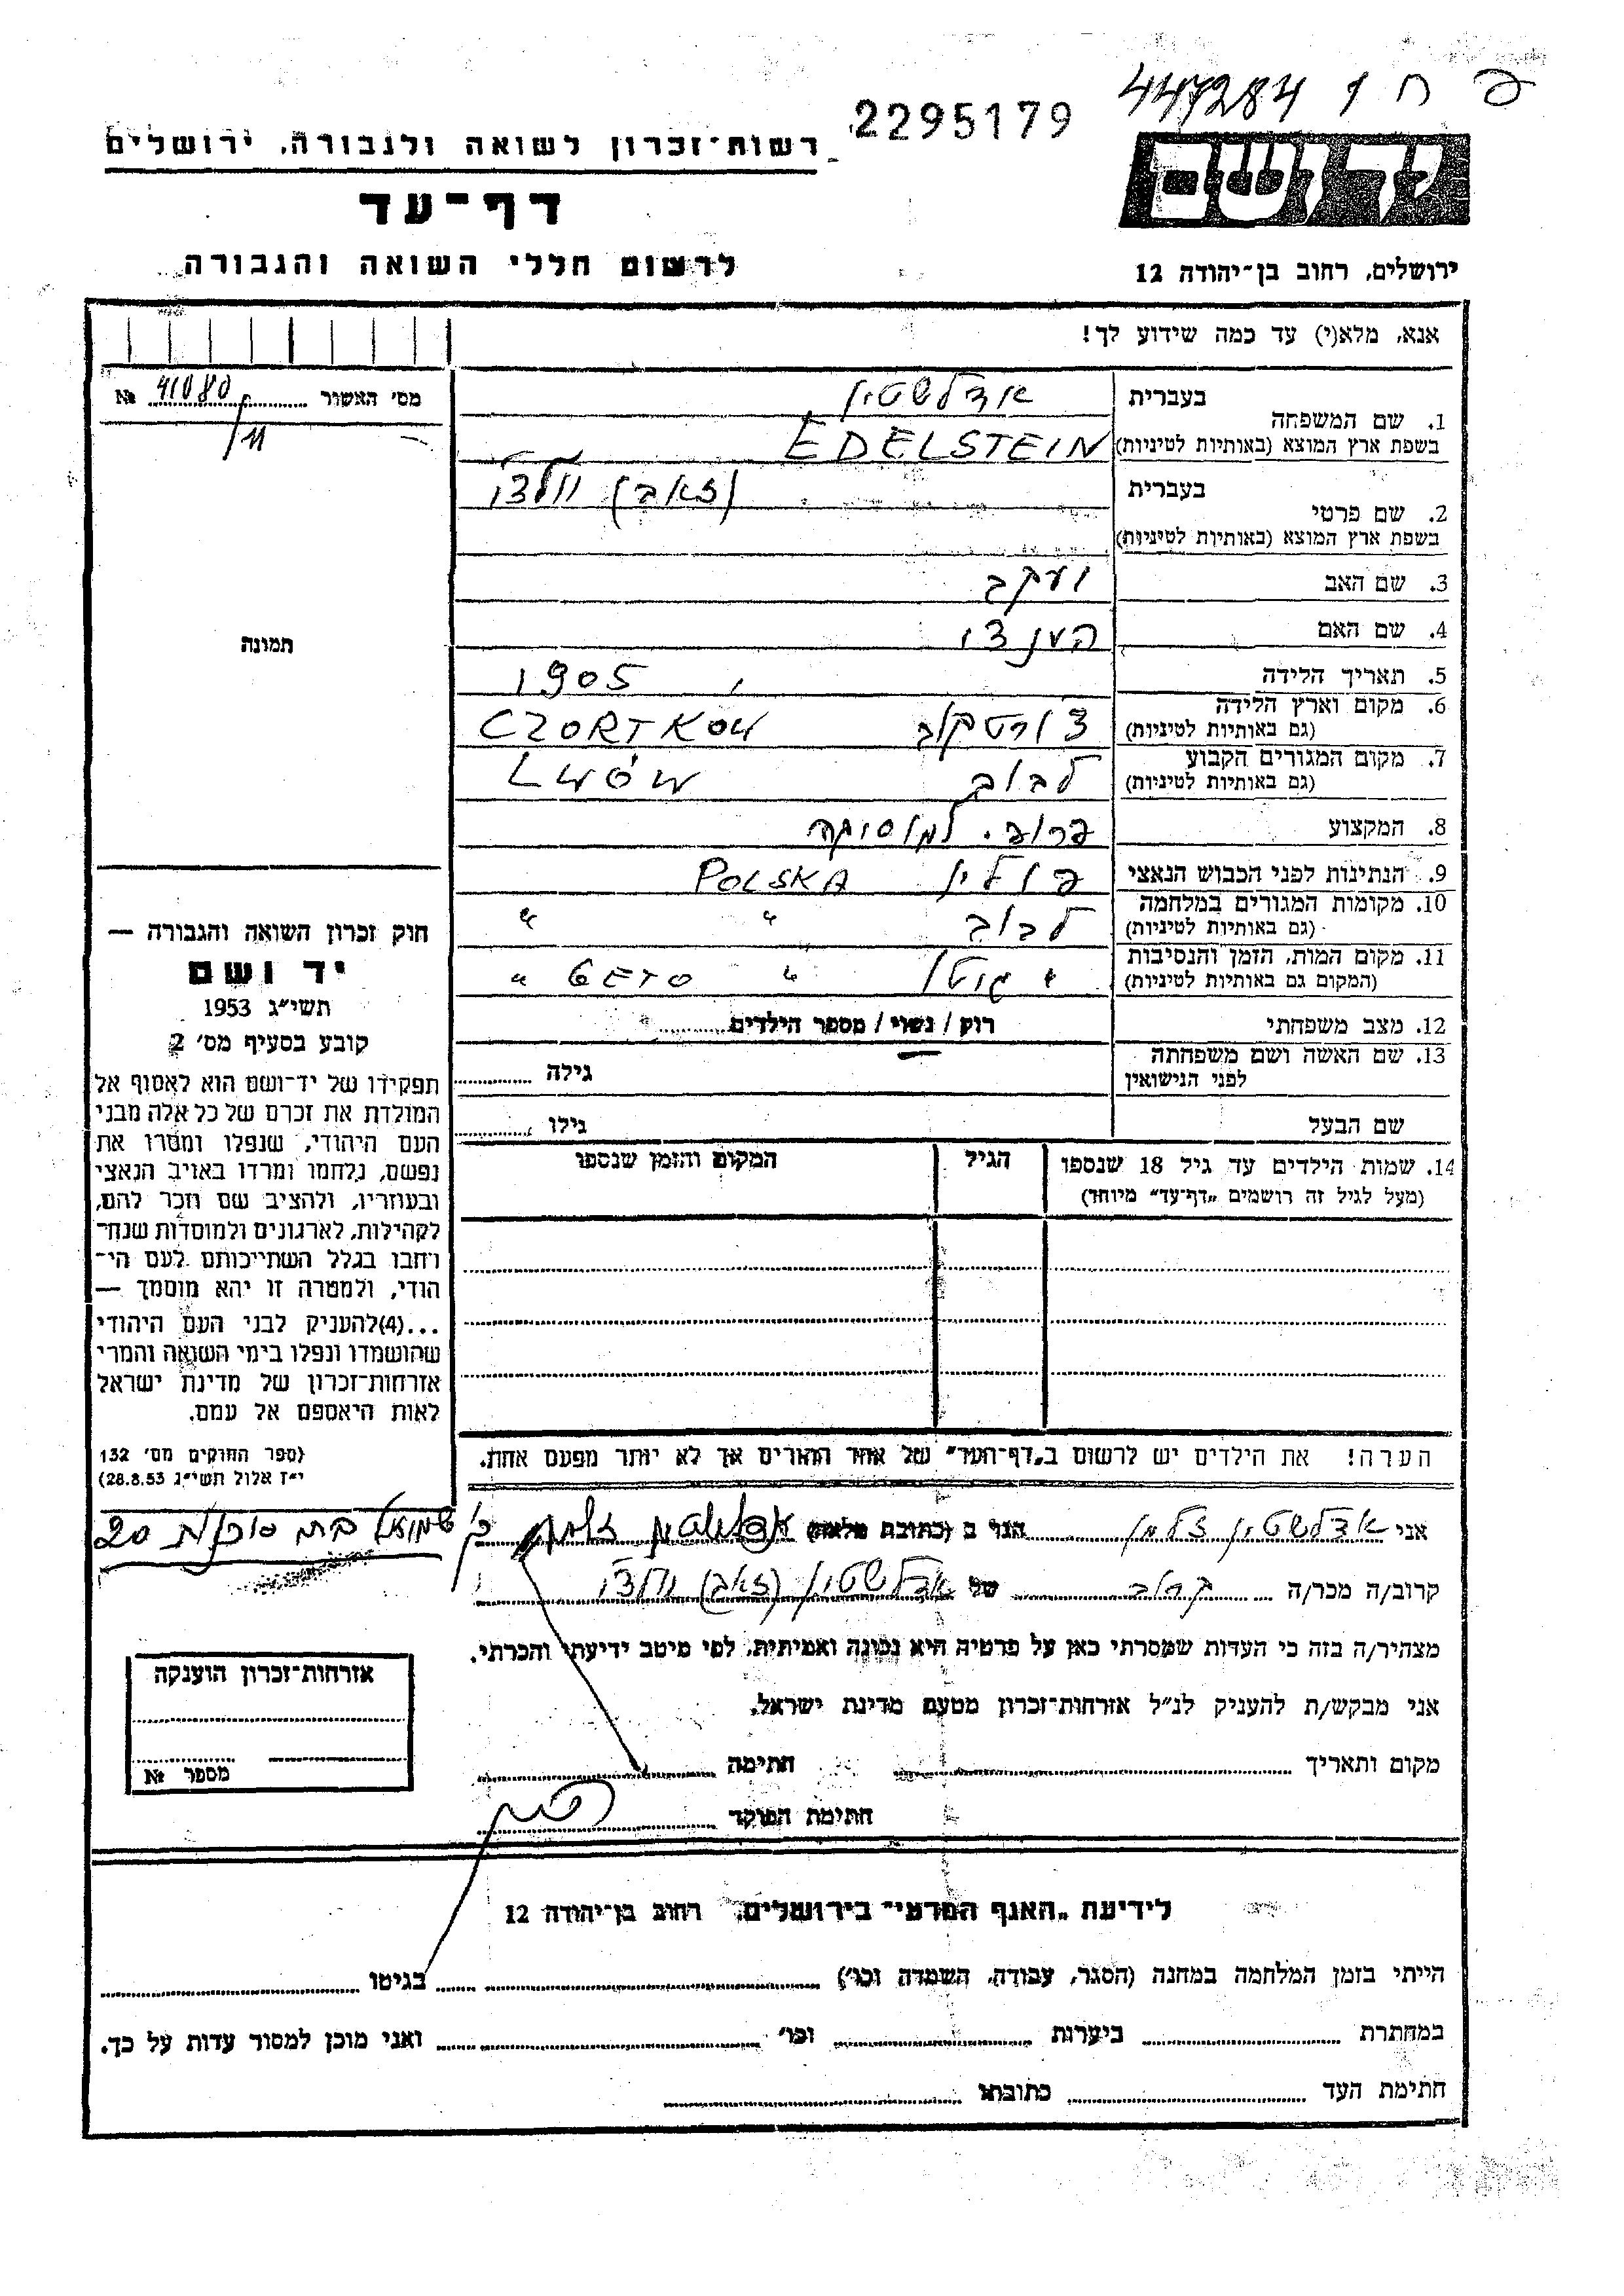 פ ח 1 447284
2295179
יד ושם
רשות-זכרון לשואה ולגבורה, ירושלים
דף-עד
לרשום חללי השואה והגבורה
ירושלים, רחוב בן-יהודה 12
אנא, מלא(י) עד כמה שידוע לך!
מס' האשור 41080 №
/11
תמונה
1. שם המשפחה
בעברית אדלשטין
בשפת ארץ המוצא (באותיות לטיניות) EDELSTEIN
2. שם פרטי
בעברית (זאב)
בשפת ארץ המוצא (באותיות לטיניות)
3. שם האב יעקב
4. שם האם
5. תאריך הלידה 1905
6. מקום וארץ הלידה צ'ורטקוב CZORTKOW
(גם באותיות לטיניות)
7. מקום המגורים הקבוע לבוב LWÓW
(גם באותיות לטיניות)
8. המקצוע פרופ. למוסיקה
9. הנתינות לפני הכבוש הנאצי פולין POLSKA
10. מקומות המגורים במלחמה לבוב " "
(גם באותיות לטיניות)
11. מקום המות, הזמן והנסיבות " גיטו " GETO "
(המקום גם באותיות לטיניות)
12. מצב משפחתי רוק / נשוי / מספר הילדים
13. שם האשה ושם משפחתה
לפני הנישואין גילה
שם הבעל גילו
14. שמות הילדים עד גיל 18 שנספו הגיל המקום והזמן שנספו
(מעל לגיל זה רושמים „דף-עד" מיוחד)
הערה! את הילדים יש לרשום ב„דף-העד" של אחד ההורים אך לא יותר מפעם אחת.
חוק זכרון השואה והגבורה —
יד ושם
תשי"ג 1953
קובע בסעיף מס' 2
תפקידו של יד-ושם הוא לאסוף אל
המולדת את זכרם של כל אלה מבני
העם היהודי, שנפלו ומסרו את
נפשם, נלחמו ומרדו באויב הנאצי
ובעוזריו, ולהציב שם וזכר להם,
לקהילות, לארגונים ולמוסדות שנח-
רחבו בגלל השתייכותם לעם הי-
הודי, ולמטרה זו יהא מוסמך —
...(4)להעניק לבני העם היהודי
שהושמדו ונפלו בימי השואה והמרי
אזרחות-זכרון של מדינת ישראל
לאות היאספם אל עמם.
(ספר החוקים מס' 132
י"ז אלול תשי"ג 28.8.53)
אני אדלשטין זלמן הגר ב (כתובת מלאה) שמואל 20
קרוב/ה מכר/ה קרוב של אדלשטין (זאב)
מצהיר/ה בזה כי העדות שמסרתי כאן על פרטיה היא נכונה ואמיתית, לפי מיטב ידיעתי והכרתי.
אני מבקש/ת להעניק לנ"ל אזרחות-זכרון מטעם מדינת ישראל.
מקום ותאריך חתימה
חתימת הפוקד
אזרחות-זכרון הוענקה
מספר №
לידיעת „האגף הפרטי" בירושלים, רחוב בן-יהודה 12
הייתי בזמן המלחמה במחנה (הסגר, עבודה, השמדה וכו') בגיטו
במחתרת ביערות וכו' ואני מוכן למסור עדות על כך.
חתימת העד כתובתו